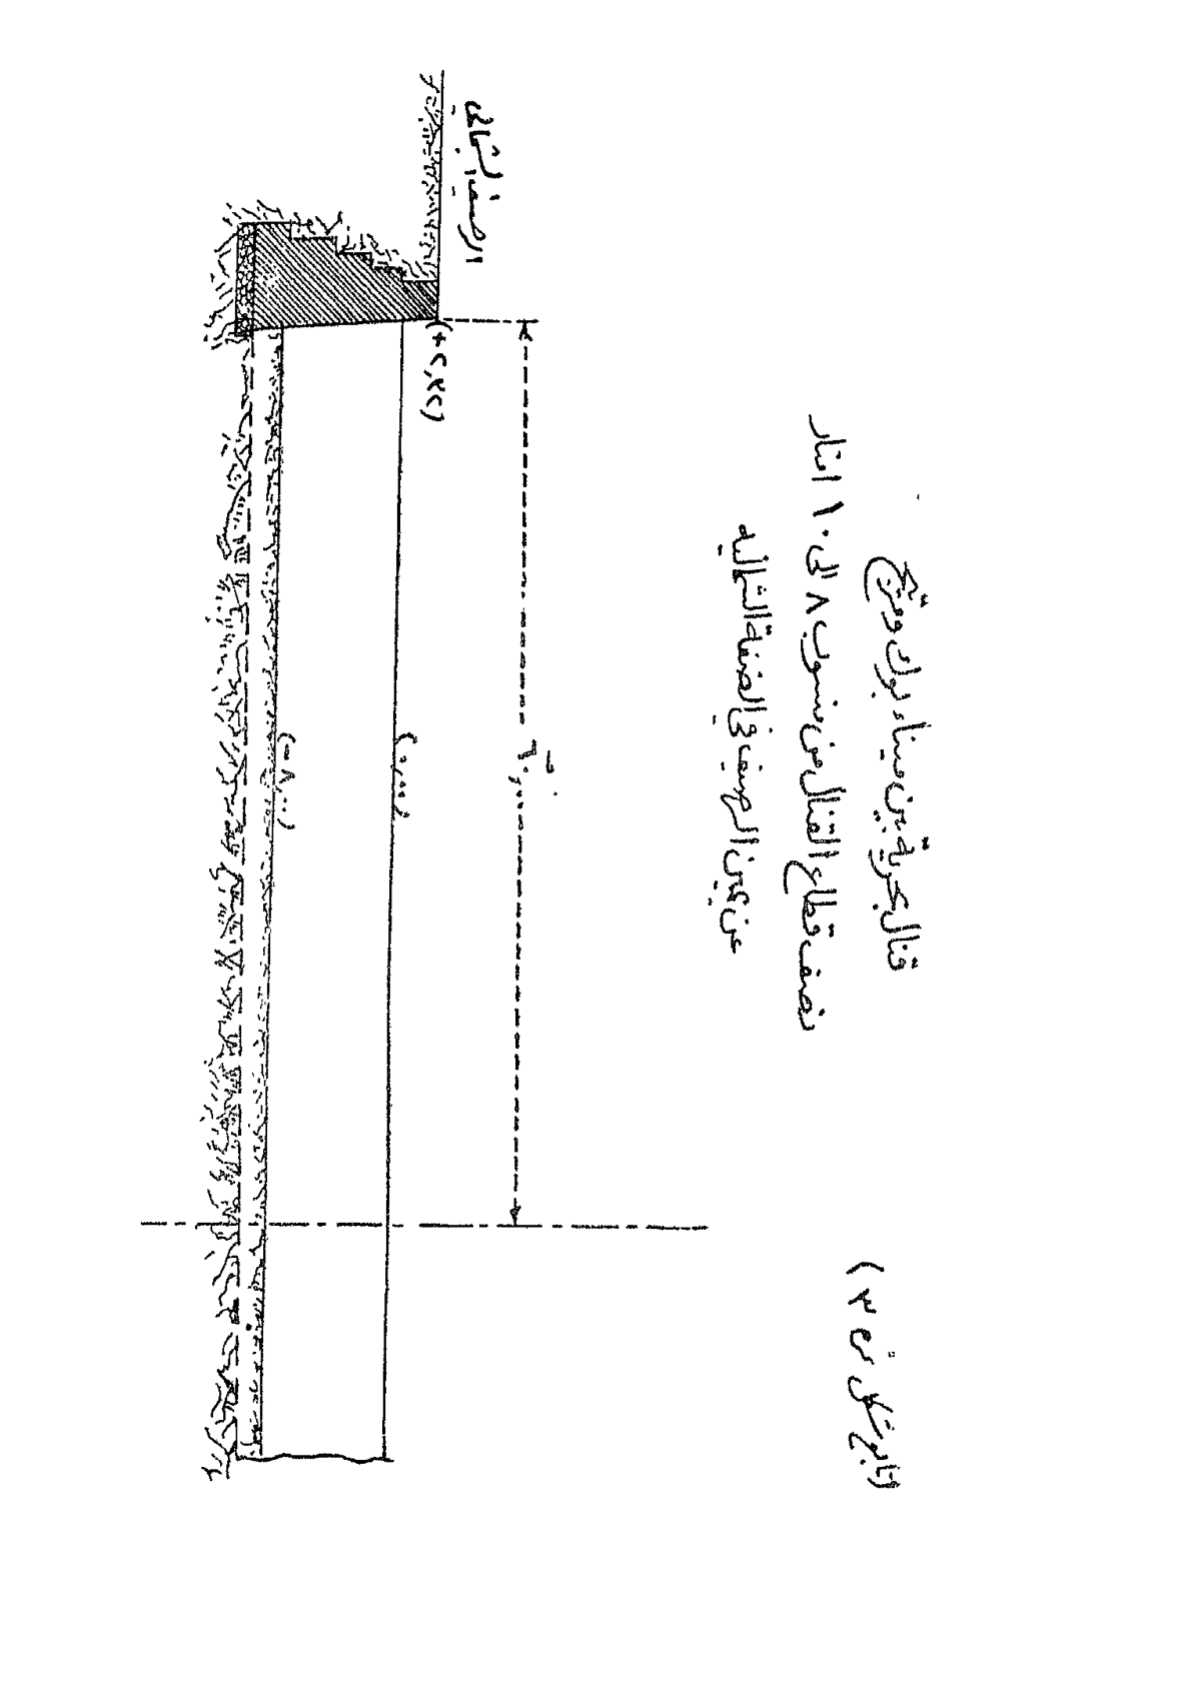 (تابع شكل رقم ٣)
قنال بحرية بين ميناء بوك وفتح
نصف قطاع القنال من منسوب ٨ الى ١٠ امتار
عن يمين الرصيف فى الضفة الشمالية
٦٠,٠٠
الرصيف الشمالى
(+٢,٧٢)
(٠,٠٠)
(-٨,٠٠)